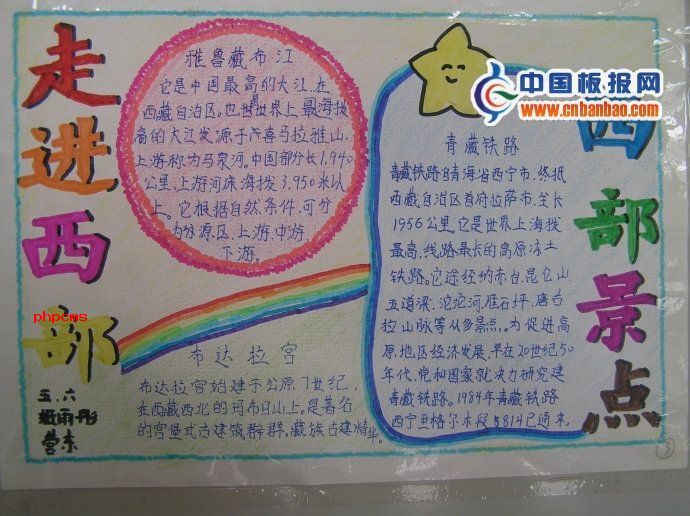 走进西部
雅鲁藏布江
它是中国最高的大江,在
西藏自治区。也世世界上最海拔
高的大江发源于喜马拉雅山,
上游称为马泉河,中国部分长1.940
公里,上游河床海拔3.950米以
上。它根据自然条件,可分
为分源区、上游、中游、
下游。
布达拉宫
布达拉宫始建于公原7世纪,
在西藏西北的玛布日山上。是著名
的宫堡式古建筑群群,藏族古建精华。
五、六
雨彤
营东
phpcms
中国板报网
www.cnbanbao.com
西部景点
青藏铁路
青藏铁路青海省西宁市,终抵
西藏自治区首府拉萨市,全长
1956公里。它是世界上海拔
最高,线路最长的高原冻土
铁路。它途经纳赤台、昆仑山
五道梁、沱沱河、雁石坪、唐古
拉山脉等众多景点。为促进高
原地区经济发展,早在20世纪50
年代,党和国家就决力研究建
青藏铁路。1984年青藏铁路
西宁至格尔木段5814已通车。